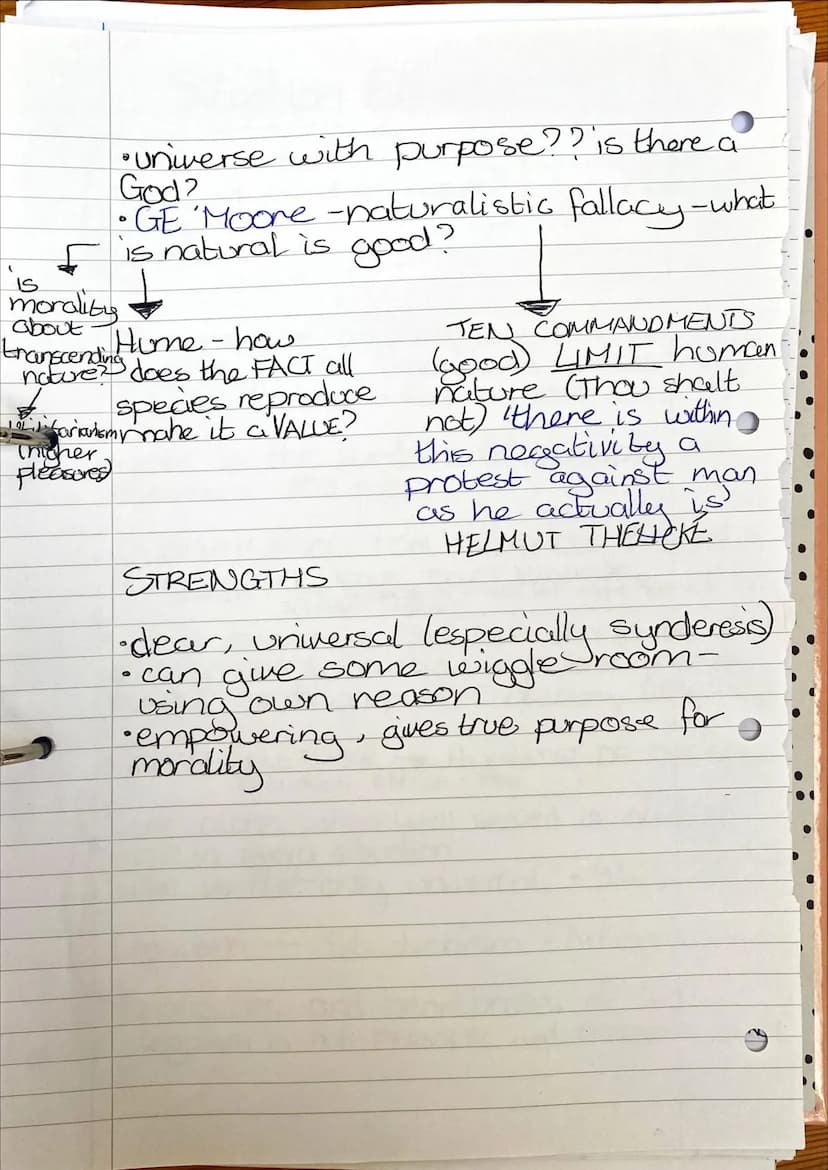 •universe with purpose?? is there a
God?
•GE Moore -naturalistic fallacy-what
is natural is good?
is
morality
about
transcending
nature?
(higher
pleasures)
Hume - how
does the FACT all
species reproduce
make it a VALUE?
TEN COMMANDMENTS
(good) LIMIT human
nature (Thou shalt
not) 'there is within
this negativity a
protest against man
as he actually is'
HELMUT
STRENGTHS
•clear, universal (especially synderesis)
•can give some wiggle room-
using own reason
•empowering, gives true purpose for
morality